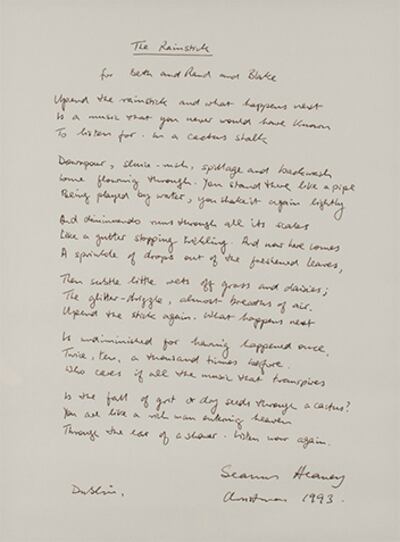 The Rainstick
for Beth and Rand and Blake
Upend the rainstick and what happens next
Is a music that you never would have known
To listen for. In a cactus stalk
Downpour, sluice-rush, spillage and backwash
Come flowing through. You stand there like a pipe
Being played by water, you shake it again lightly
And diminuendo runs through all its scales
Like a gutter stopping trickling. And now here comes
A sprinkle of drops out of the freshened leaves,
Then subtle little wets off grass and daisies;
The glitter-drizzle, almost-breaths of air.
Upend the stick again. What happens next
Is undiminished for having happened once,
Twice, ten, a thousand times before.
Who cares if all the music that transpires
Is the fall of grit or dry seeds through a cactus?
You are like a rich man entering heaven
Through the ear of a shower. Listen now again.
Seamus Heaney
Dublin,
Christmas 1993.